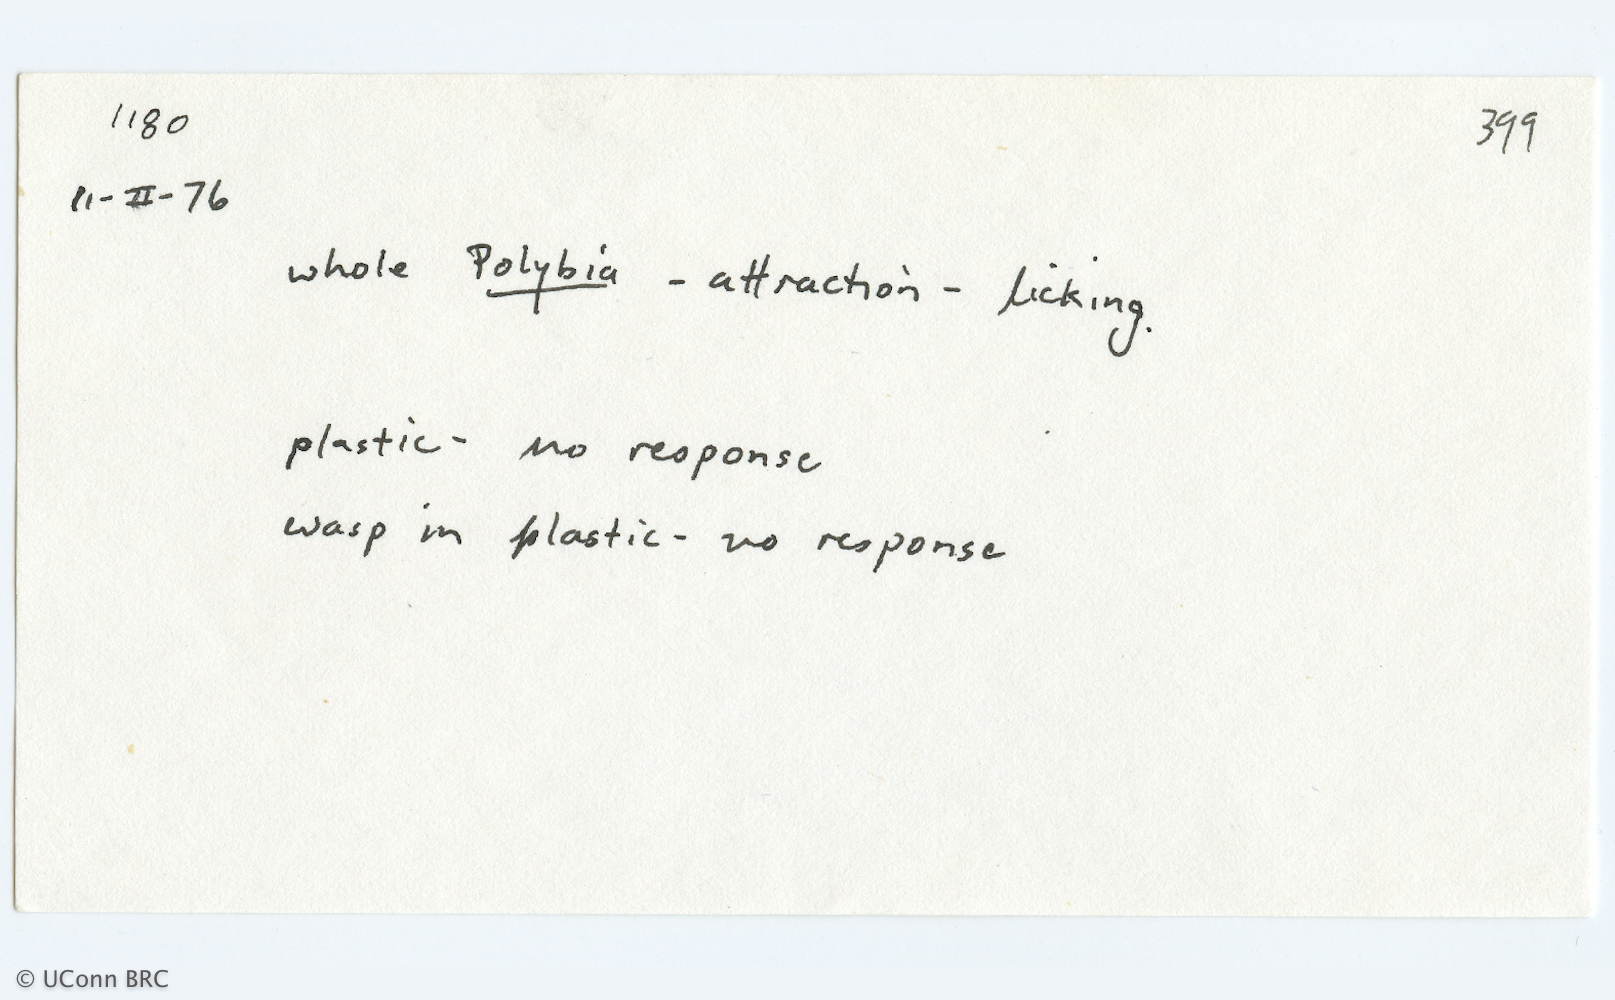 1180
399
11-II-76
whole Polybia - attraction - licking.
plastic- no response
wasp in plastic- no response
© UConn BRC